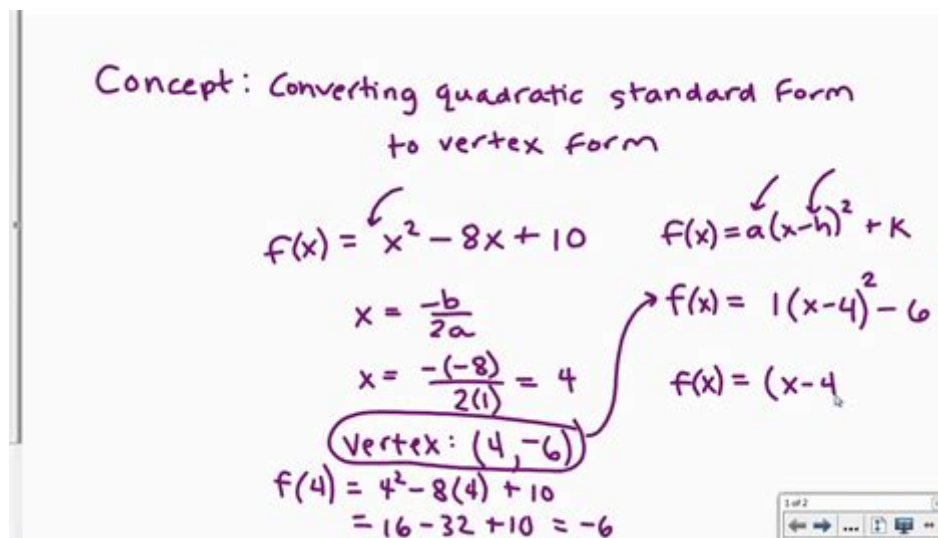 Concept: Converting quadratic standard form
to vertex form
f(x) = x² - 8x + 10
x = -b/2a
x = -(-8)/2(1) = 4
vertex: (4, -6)
f(4) = 4² - 8(4) + 10
= 16 - 32 + 10 = -6
f(x) = a(x-h)² + k
f(x) = 1(x-4)² - 6
f(x) = (x-4
1 of 2